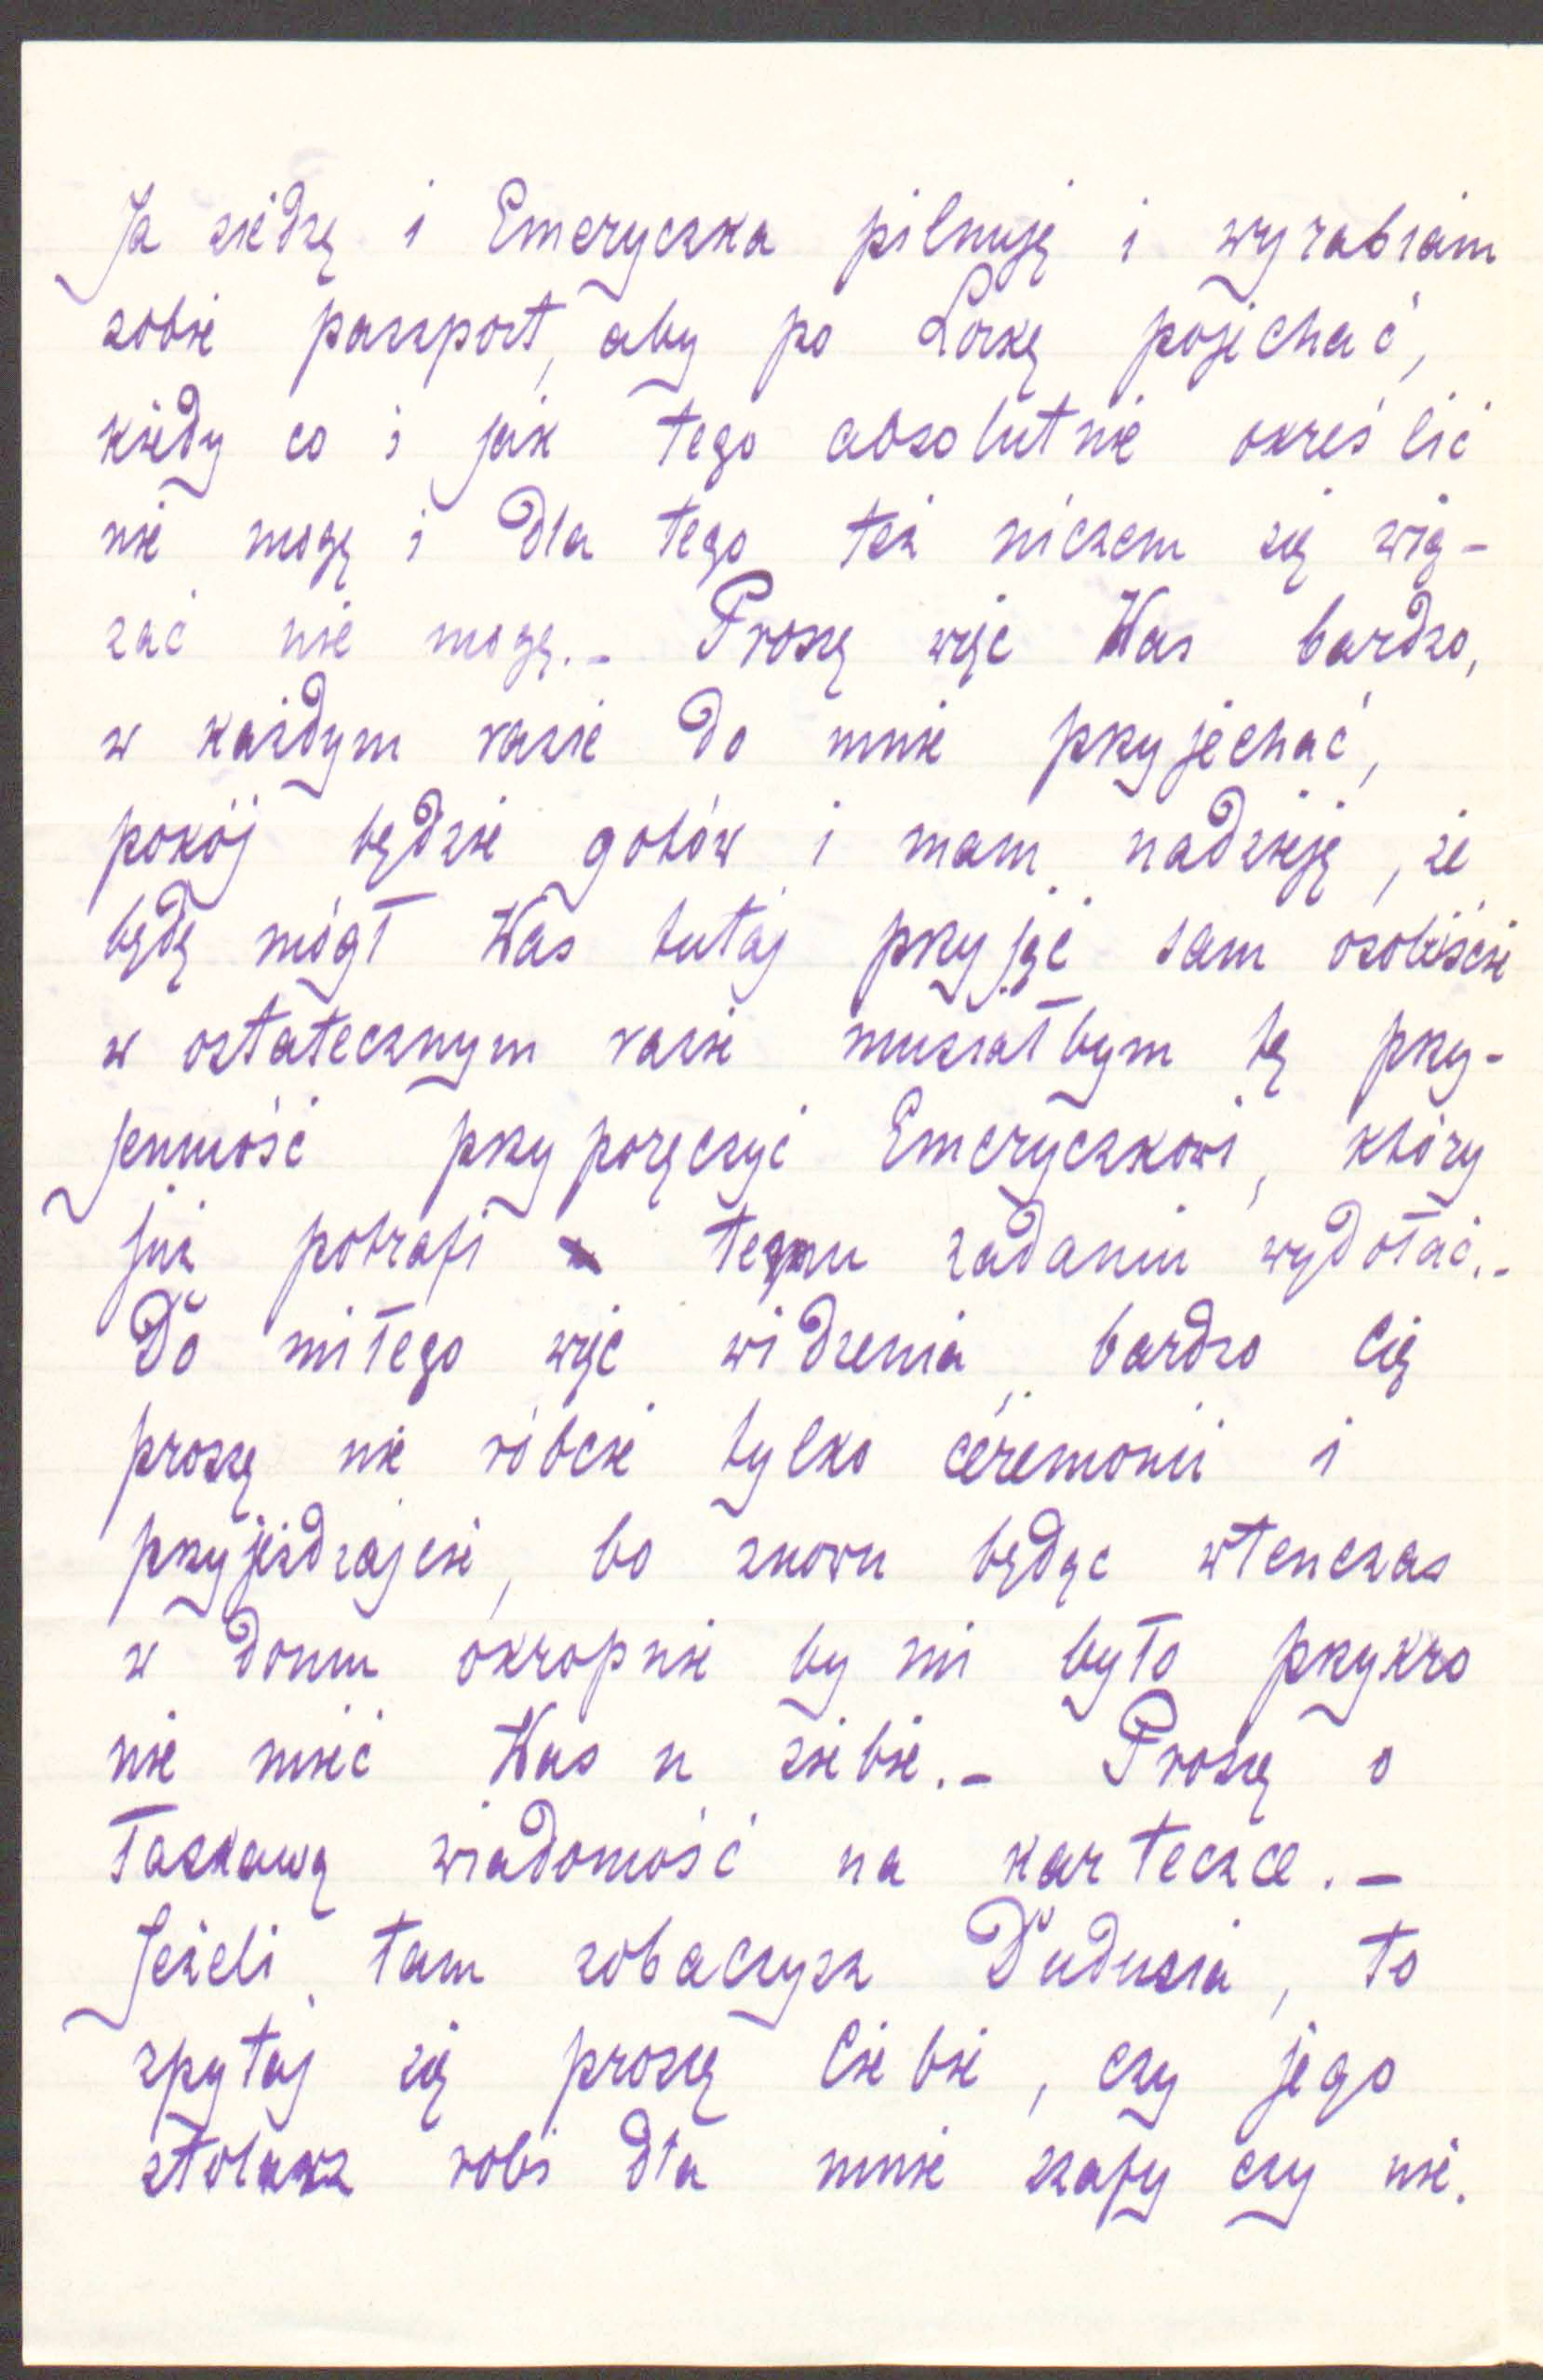 Ja siedzę i Emeryczka pilnuję i wyrabiam
sobie paszport, aby po Lorkę pojechać,
kiedy co i jak tego absolutnie określić
nie mogę i dla tego też niczem się wią-
zać nie mogę.- Proszę więc Was bardzo,
w każdym razie do mnie przyjechać,
pokój będzie gotów i mam nadzieję, że
będę mógł Was tutaj przyjąć sam osobiście
w ostatecznym razie musiałbym tę przy-
jemność przyporęczyć Emeryczkowi, który
już potrafi temu zadaniu wydołać.-
Do miłego więc widzenia, bardzo Cię
proszę nie róbcie tylko ceremonii i
przyjeżdzajcie, bo znowu będąc wtenczas
w domu okropnie by mi było przykro
nie mieć Was u siebie.- Proszę o
łaskawą wiadomość na karteczce.-
Jeżeli tam zobaczysz Dudusia, to
spytaj się proszę Ciebie, czy jego
stolarz robi dla mnie szafy czy nie.